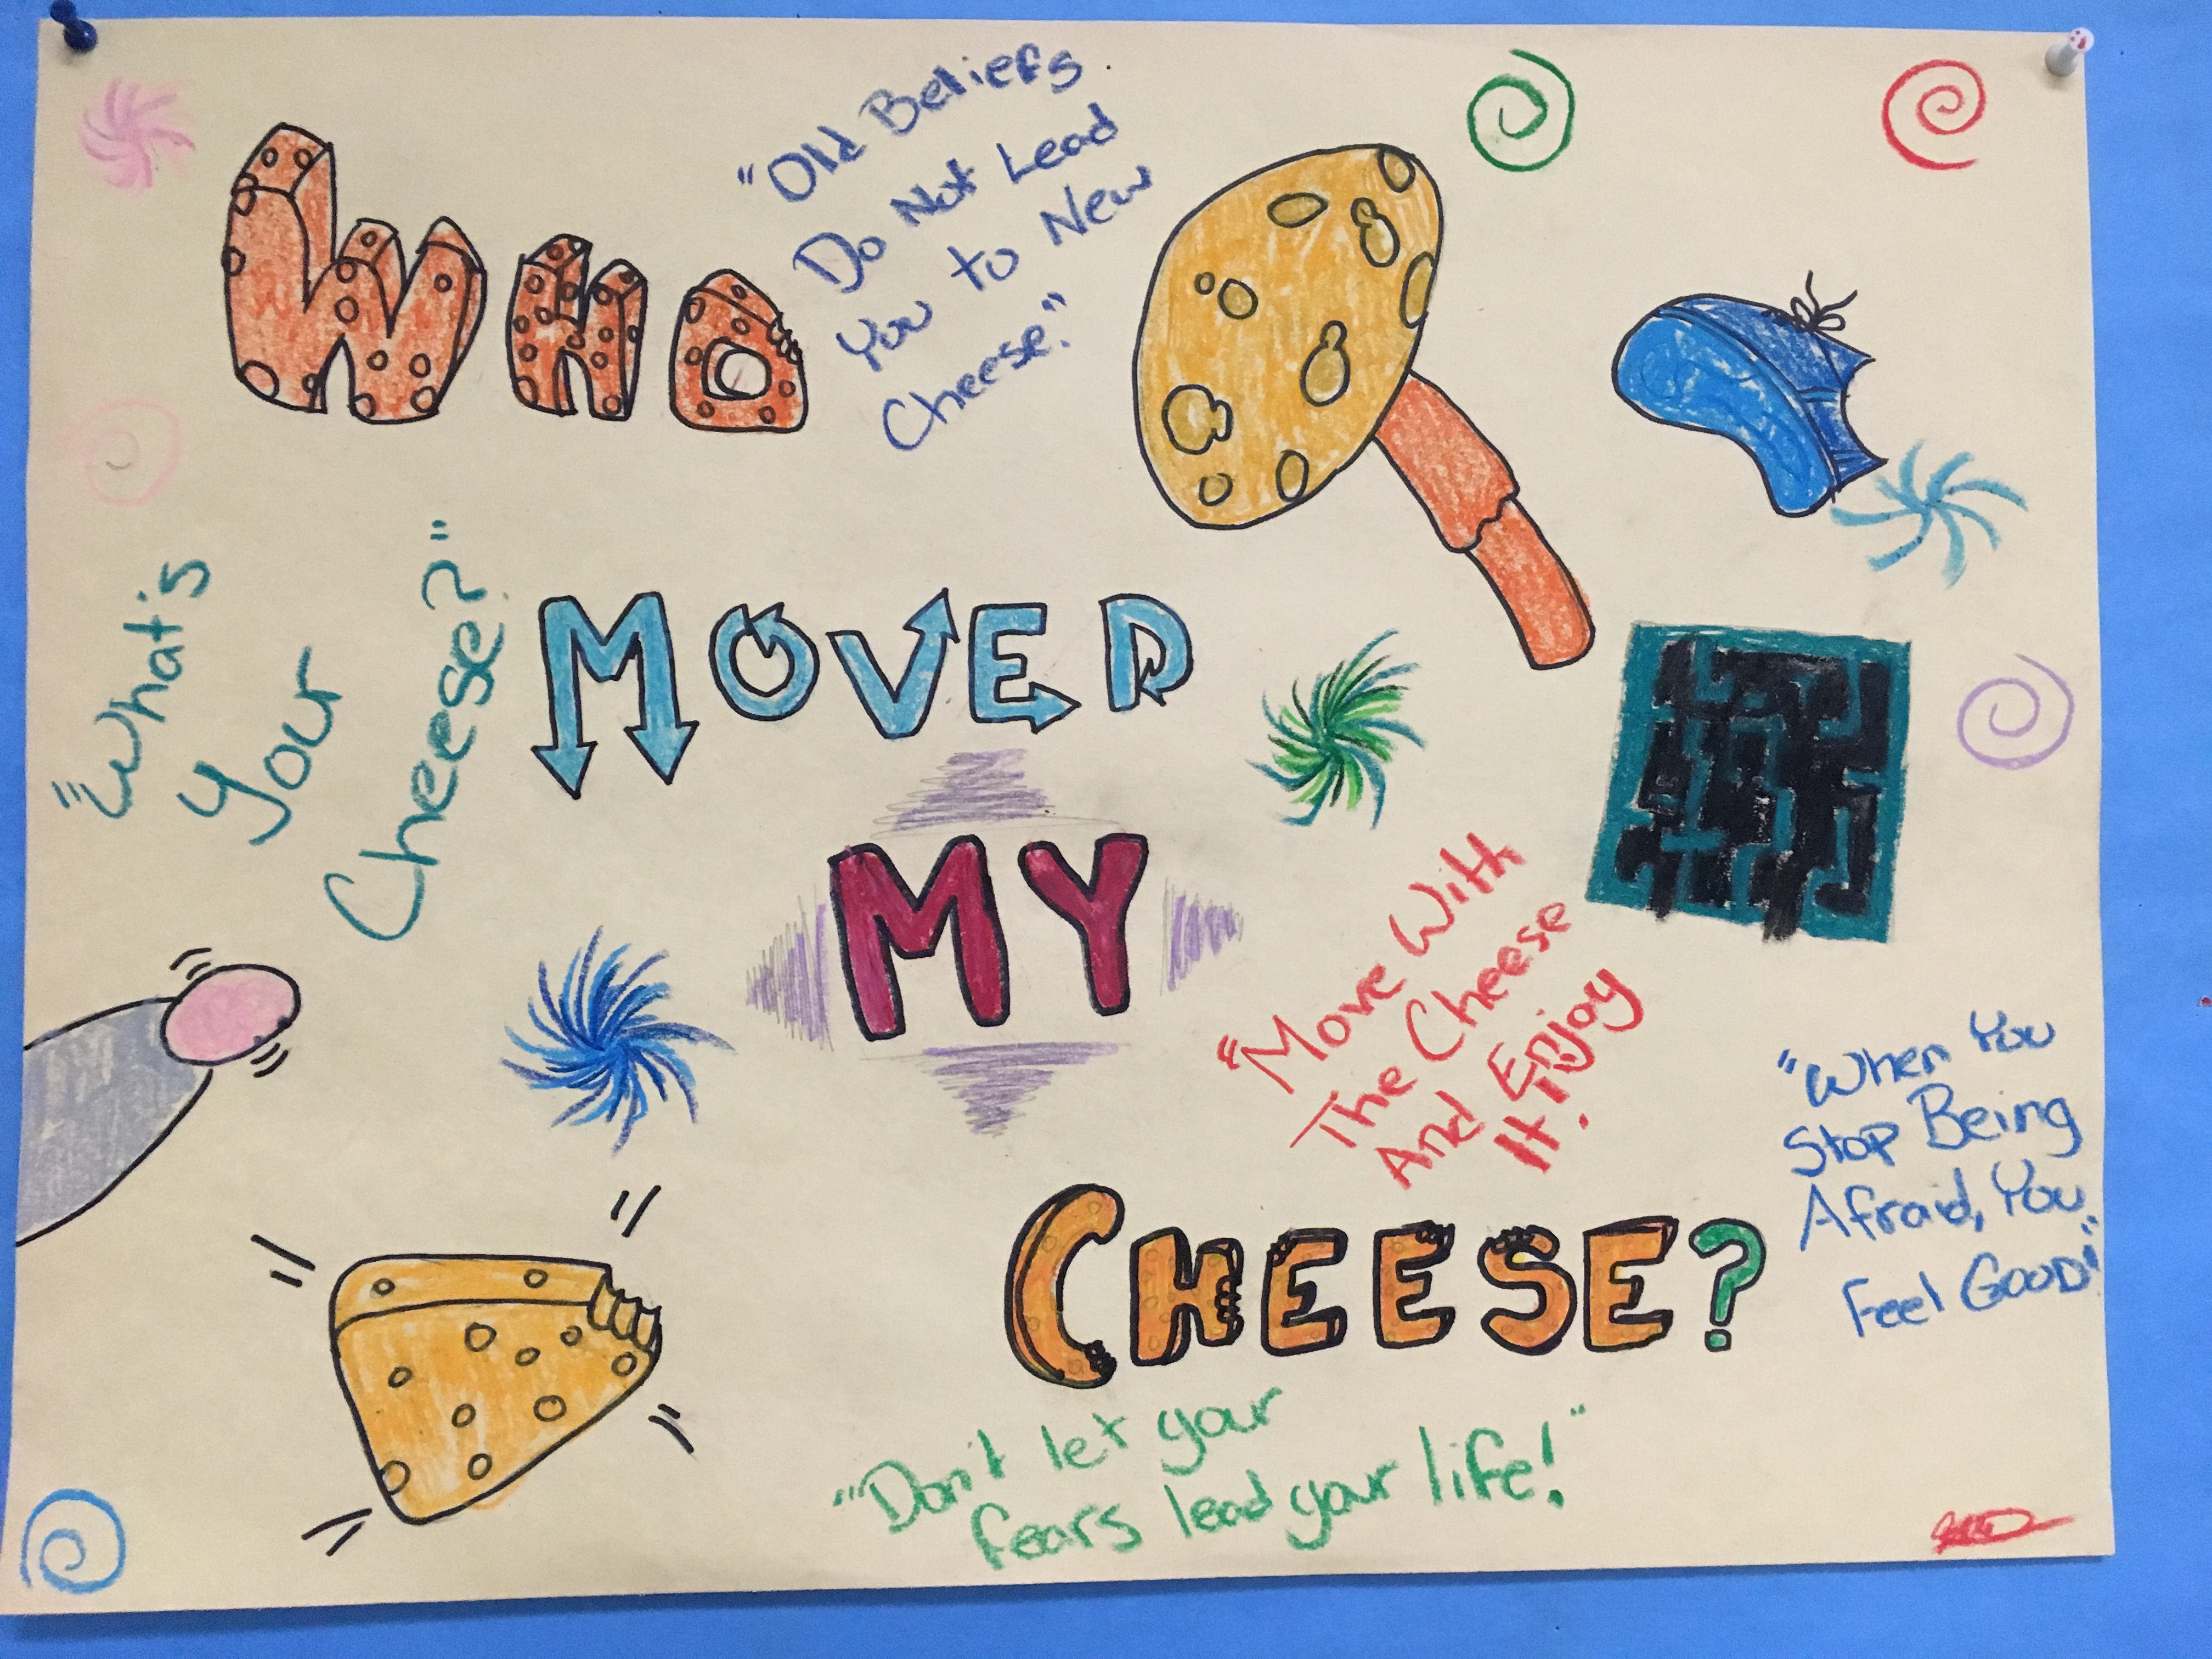 Who
"Old Beliefs
Do Not Lead
You to New
Cheese."
"What's
Your
Cheese?"
MOVED
MY
"Move With
The Cheese
And Enjoy
It!"
"When You
Stop Being
Afraid, You
Feel Good"
CHEESE?
"Don't let your
fears lead your life!"